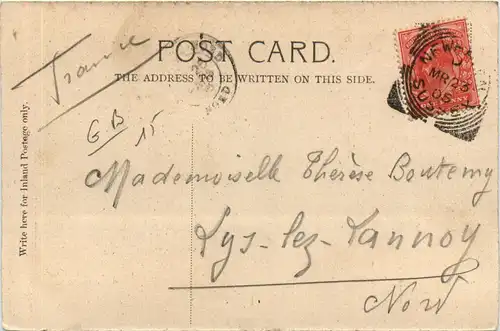 France
POST CARD.
THE ADDRESS TO BE WRITTEN ON THIS SIDE.
MR 23
05
GB
15
Write here for Inland Postage only.
Mademoiselle Thérèse Boutemy
Lys-lez-Lannoy
Nord